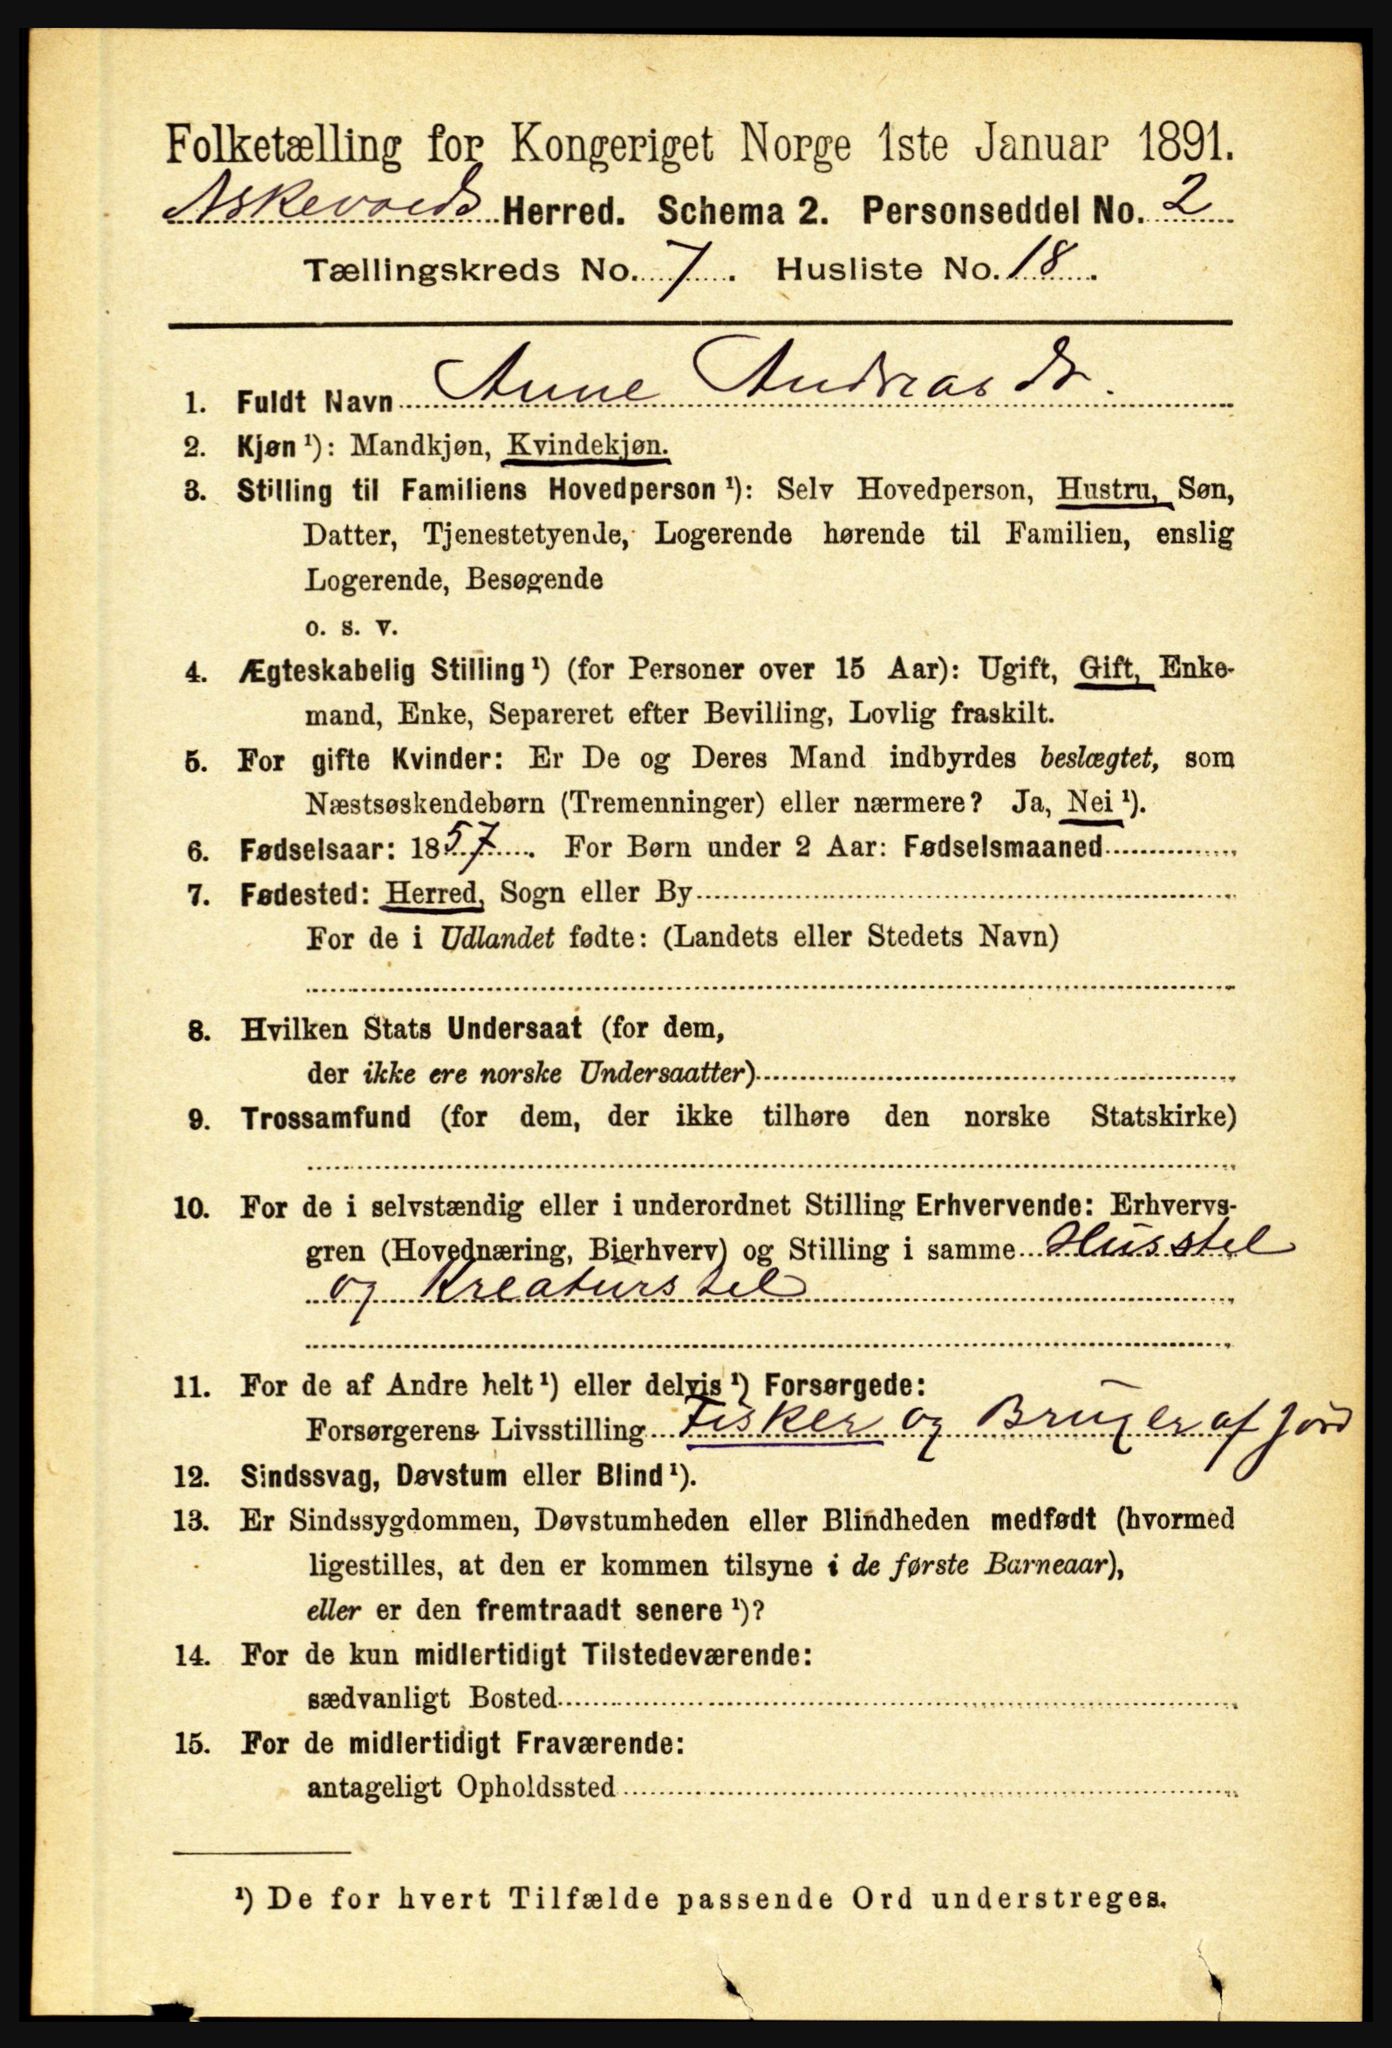 Folketælling for Kongeriget Norge 1ste Januar 1891.
Askevolds Herred. Schema 2. Personseddel No. 2
Tællingskreds No. 7. Husliste No. 18.
1. Fuldt Navn Anne Andreasdr.
2. Kjøn ¹): Mandkjøn, Kvindekjøn.
3. Stilling til Familiens Hovedperson ¹): Selv Hovedperson, Hustru, Søn,
Datter, Tjenestetyende, Logerende hørende til Familien, enslig
Logerende, Besøgende
o. s. v.
4. Ægteskabelig Stilling ¹) (for Personer over 15 Aar): Ugift, Gift, Enke-
mand, Enke, Separeret efter Bevilling, Lovlig fraskilt.
5. For gifte Kvinder: Er De og Deres Mand indbyrdes beslægtet, som
Næstsøskendebørn (Tremenninger) eller nærmere? Ja, Nei ¹).
6. Fødselsaar: 1857. For Børn under 2 Aar: Fødselsmaaned
7. Fødested: Herred, Sogn eller By
For de i Udlandet fødte: (Landets eller Stedets Navn)
8. Hvilken Stats Undersaat (for dem,
der ikke ere norske Undersaatter)
9. Trossamfund (for dem, der ikke tilhøre den norske Statskirke)
10. For de i selvstændig eller i underordnet Stilling Erhvervende: Erhvervs-
gren (Hovednæring, Bierhverv) og Stilling i samme Husstel
og Kreaturstel
11. For de af Andre helt ¹) eller delvis ¹) Forsørgede:
Forsørgerens Livsstilling Fisker og Bruger af Jord
12. Sindssvag, Døvstum eller Blind ¹).
13. Er Sindssygdommen, Døvstumheden eller Blindheden medfødt (hvormed
ligestilles, at den er kommen tilsyne i de første Barneaar),
eller er den fremtraadt senere ¹)?
14. For de kun midlertidigt Tilstedeværende:
sædvanligt Bosted
15. For de midlertidigt Fraværende:
antageligt Opholdssted
¹) De for hvert Tilfælde passende Ord understreges.